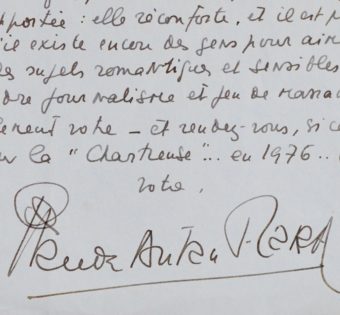 pportée : elle réconforte, et il est
'il existe encore des gens pour aim
des sujets romantiques et sensibles
dre formalisme et jeu de massa
lement votre — et rendez-vous, si ce
ur la "Chartreuse"... en 1976..
votre,
Claude Autant-Lara